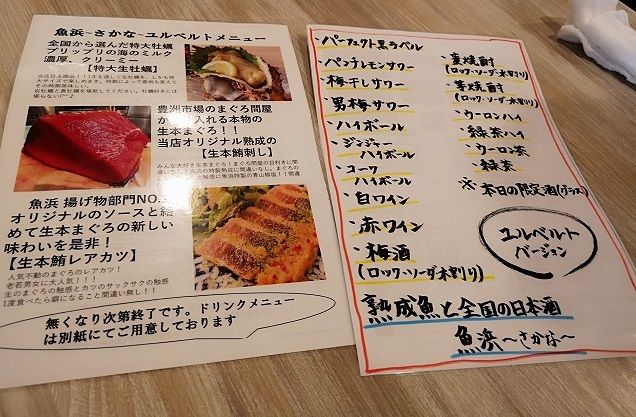 魚浜~さかな~ユルベルトメニュー
全国から選んだ特大牡蠣
プリップリの海のミルク
濃厚、クリーミー
【特大生牡蠣】
豊洲市場のまぐろ問屋
から仕入れる本物の
生本まぐろ!!
当店オリジナル熟成の
【生本鮪刺し】
魚浜 揚げ物部門NO.
オリジナルのソースと絡
めて生本まぐろの新しい
味わいを是非!
【生本鮪レアカツ】
人気不動のまぐろのレアカツ!
老若男女に大人気!!!
生のまぐろの触感とカツのサックサクの触感
1度食べたら癖になること間違い無し!!
無くなり次第終了です。ドリンクメニュー
は別紙にてご用意しております
・パーフェクト黒ラベル
・パンチレモンサワー
・梅干しサワー
・男梅サワー
・ハイボール
・ジンジャー
ハイボール
・コーク
ハイボール
・白ワイン
・赤ワイン
・梅酒
(ロック・ソーダ・水割り)
・麦焼酎
(ロック・ソーダ・水割り)
・芋焼酎
(ロック・ソーダ・水割り)
・ウーロンハイ
・緑茶ハイ
・ウーロン茶
・緑茶
※本日の限定酒(グラス)
ユルベルト
バージョン
熟成魚と全国の日本酒
魚浜~さかな~